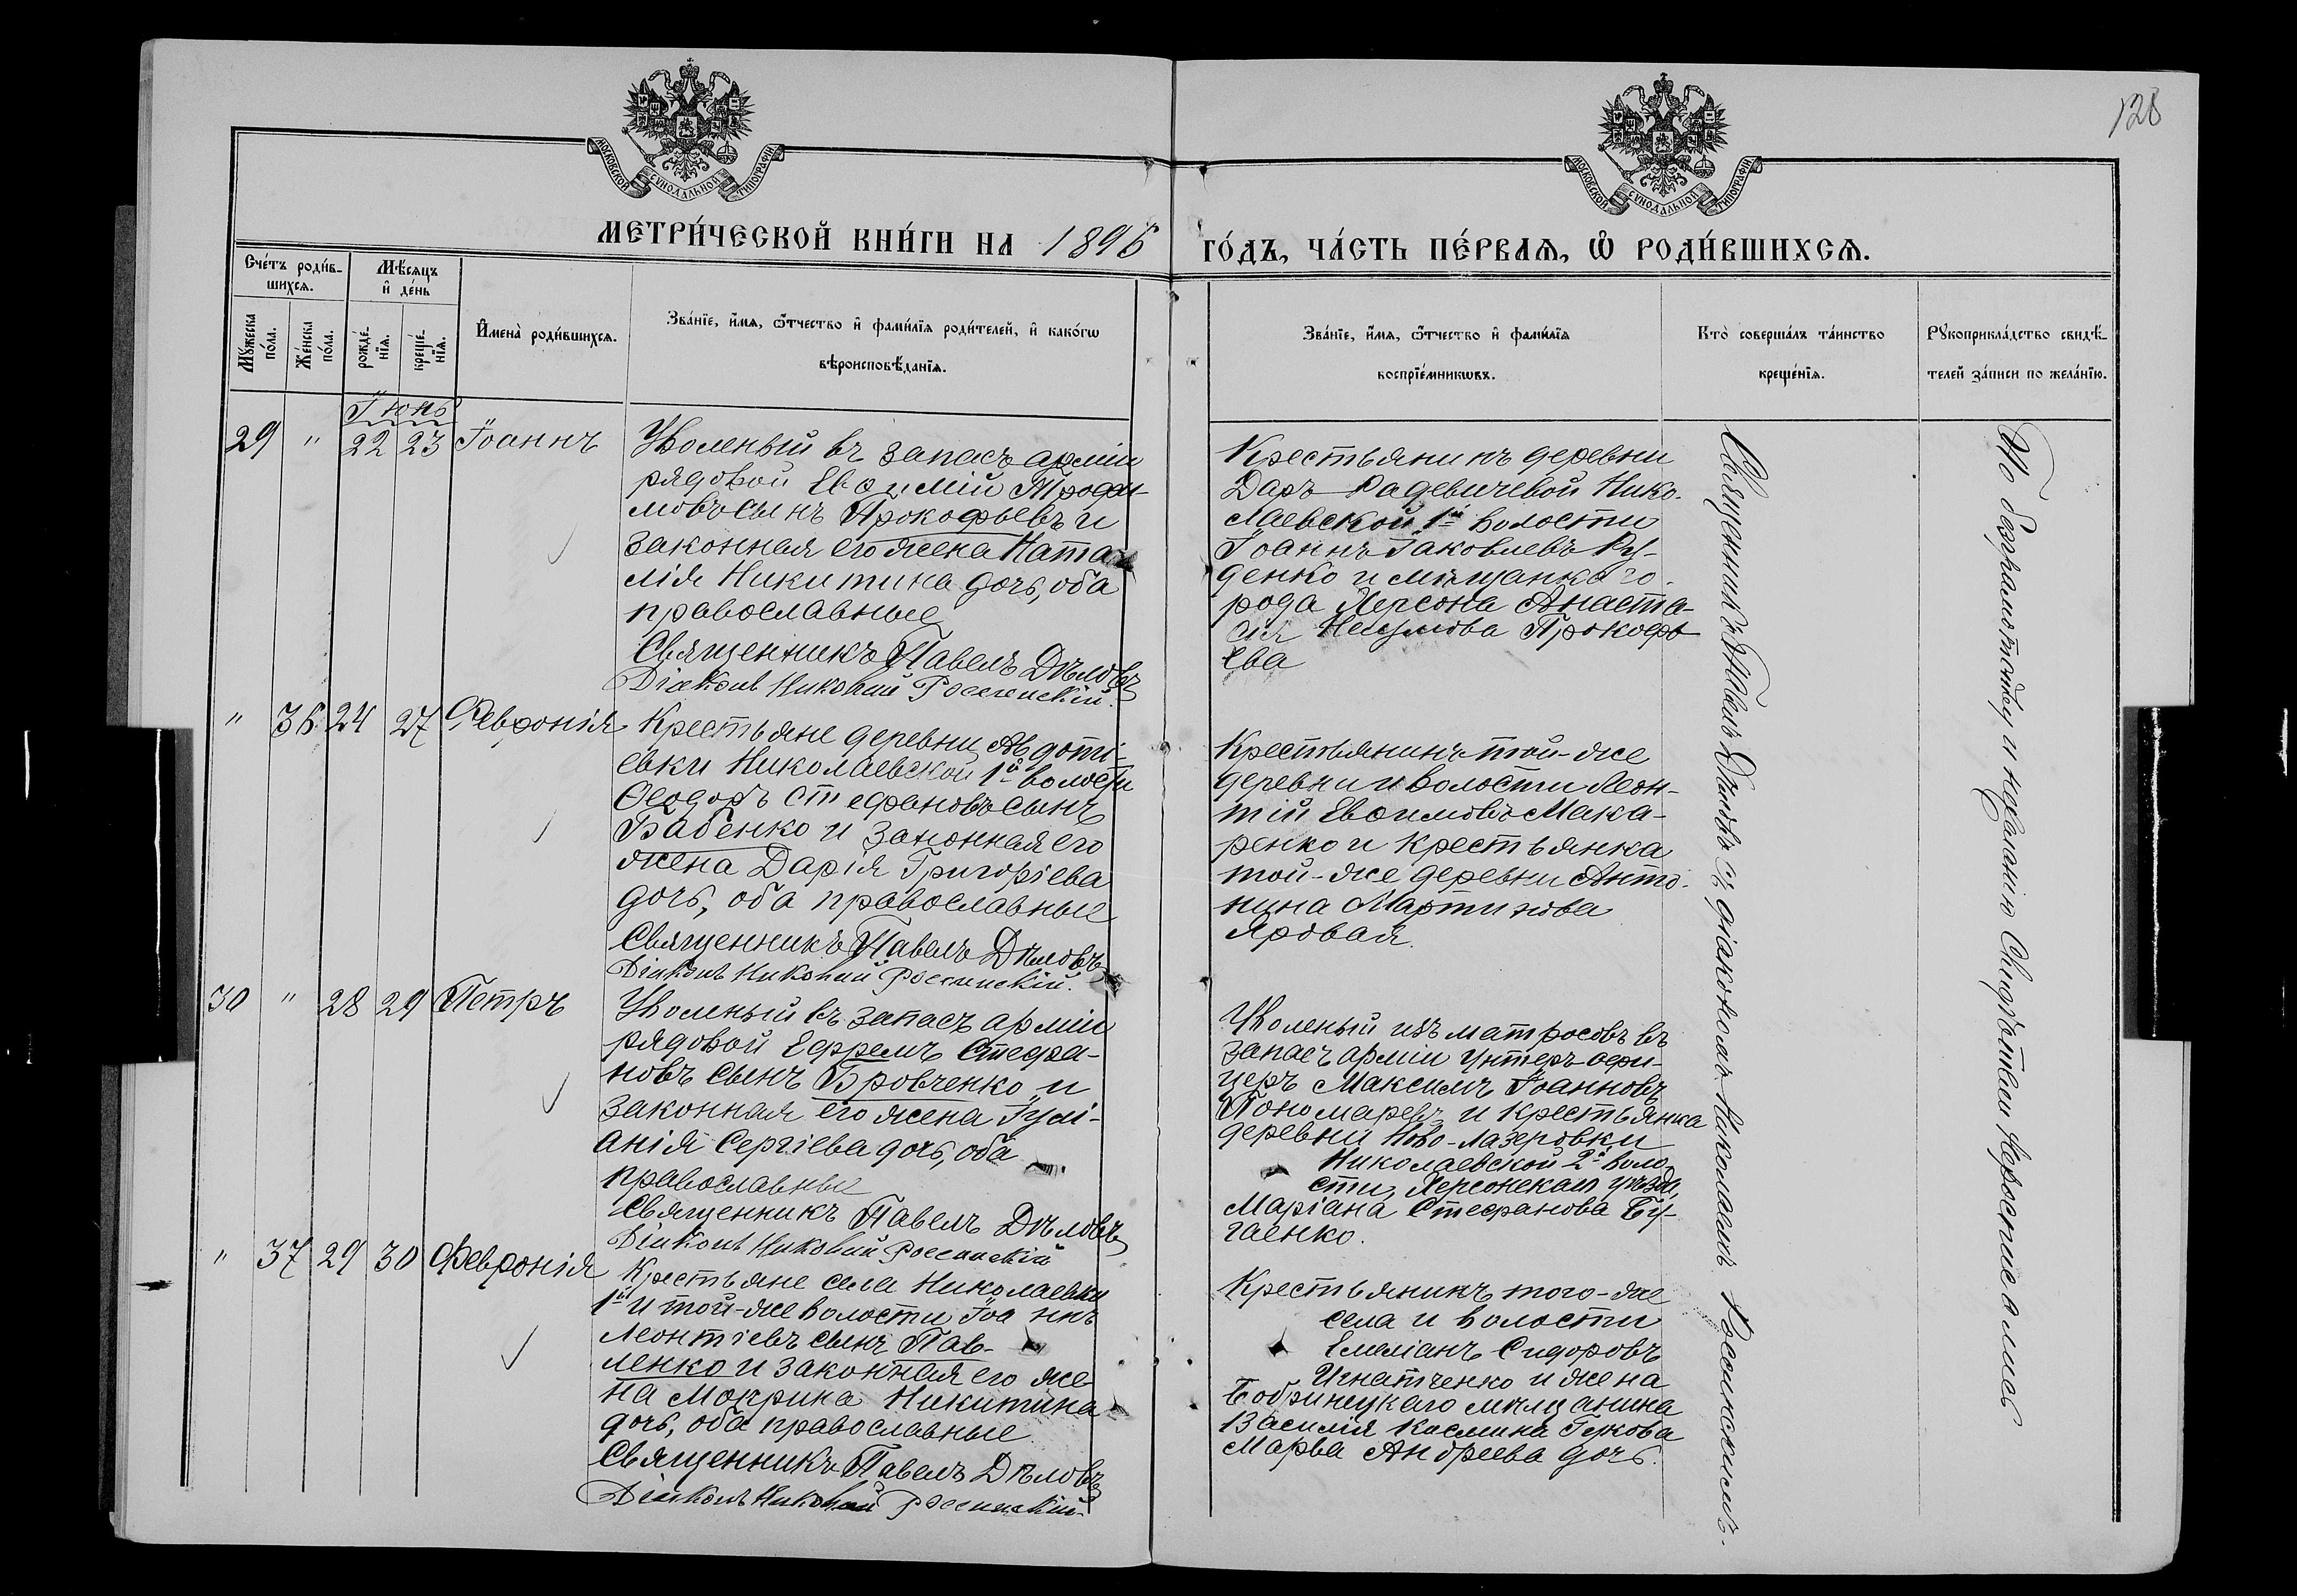 128
МОСКОВСКОЙ СУНОДАЛЬНОЙ ТИПОГРАФІИ
МОСКОВСКОЙ СУНОДАЛЬНОЙ ТИПОГРАФІИ
МЕТРИ́ЧЕСКОЙ КНИ́ГИ НА 1896 ГО́ДЪ, ЧА́СТЬ ПЕ́РВАѦ, Ѡ҆ РОДИ́ВШИХСѦ.
Сче́тъ роди́в-
шихсѧ.
Мѣ́сѧцъ
и҆ де́нь
Мꙋ́жеска
по́ла.
Же́нска
по́ла.
рожде́-
нїѧ.
креще́-
нїѧ.
И҆мена̀ роди́вшихсѧ.
Зва́нїе, и҆́мѧ, ѻ҆́тчество и҆ фами́лїѧ роди́телей, и҆ како́гѡ
вѣроисповѣ́данїѧ.
Зва́нїе, и҆́мѧ, ѻ҆́тчество и҆ фами́лїѧ
воспрїе́мникѡвъ.
Кто̀ соверша́лъ та́инство
креще́нїѧ.
Рꙋкоприкла́дство свидѣ́-
телей за́писи по жела́нїю.
Іюнь
29 " 22 23 Іоаннъ
Уволеный въ запасъ арміи
рядовой Евѳимій Трофи-
мовъ сынъ Прокофьевъ и
законная его жена Ната-
лія Никитина дочь, оба
православные
Священникъ Павелъ Дѣловъ
Діаконъ Николай Россинскій.
Крестьянинъ деревни
Даръ-Радевичевой Нико-
лаевской 1й волости
Іоаннъ Іаковлевъ Ру-
денко и мѣщанка го-
рода Херсона Анаста-
сія Прокофь-
ева
" 36 24 27 Февронія
Крестьяне деревни Авдоті-
евки Николаевской 1й волости
Ѳеодоръ Стефановъ сынъ
Бабенко и законная его
жена Дарія Григоріева
дочь, оба православные
Священникъ Павелъ Дѣловъ
Діаконъ Николай Россинскій.
Крестьянинъ той-же
деревни и волости Леон-
тій Евѳимовъ Мака-
ренко и крестьянка
той-же деревни Анто-
нина Мартинова
Яровая.
30 " 28 29 Петръ
Уволеный въ запасъ арміи
рядовой Ефремъ Стефа-
новъ сынъ Бровченко и
законная его жена Іулі-
анія Сергіева дочь, оба
православные
Священникъ Павелъ Дѣловъ
Діаконъ Николай Россинскій
Уволеный изъ матросовъ въ
запасъ арміи унтеръ-офи-
церъ Максимъ Іоанновъ
Пономаревъ и крестьянка
деревни Ново-Лазеровки
Николаевской 2й воло-
сти, Херсонскаго уѣзда,
Маріана Стефанова Бу-
гаенко.
" 37 29 30 Февронія
Крестьяне села Николаевки
1й и той-же волости Іоаннъ
Леонтіевъ сынъ Пав-
ленко и законная его же-
на Мокрина Никитина
дочь, оба православные
Священникъ Павелъ Дѣловъ
Діаконъ Николай Россинскій.
Крестьянинъ того-же
села и волости
Емеліанъ Сидоровъ
Игнатченко и жена
Бобринецкаго мѣщанина
Василія Космина Гукова
Марѳа Андреева дочь.
Священникъ Павелъ Дѣловъ съ діакономъ Николаемъ Россинскимъ.
По безграмотству и нежеланію свидѣтели не росписались